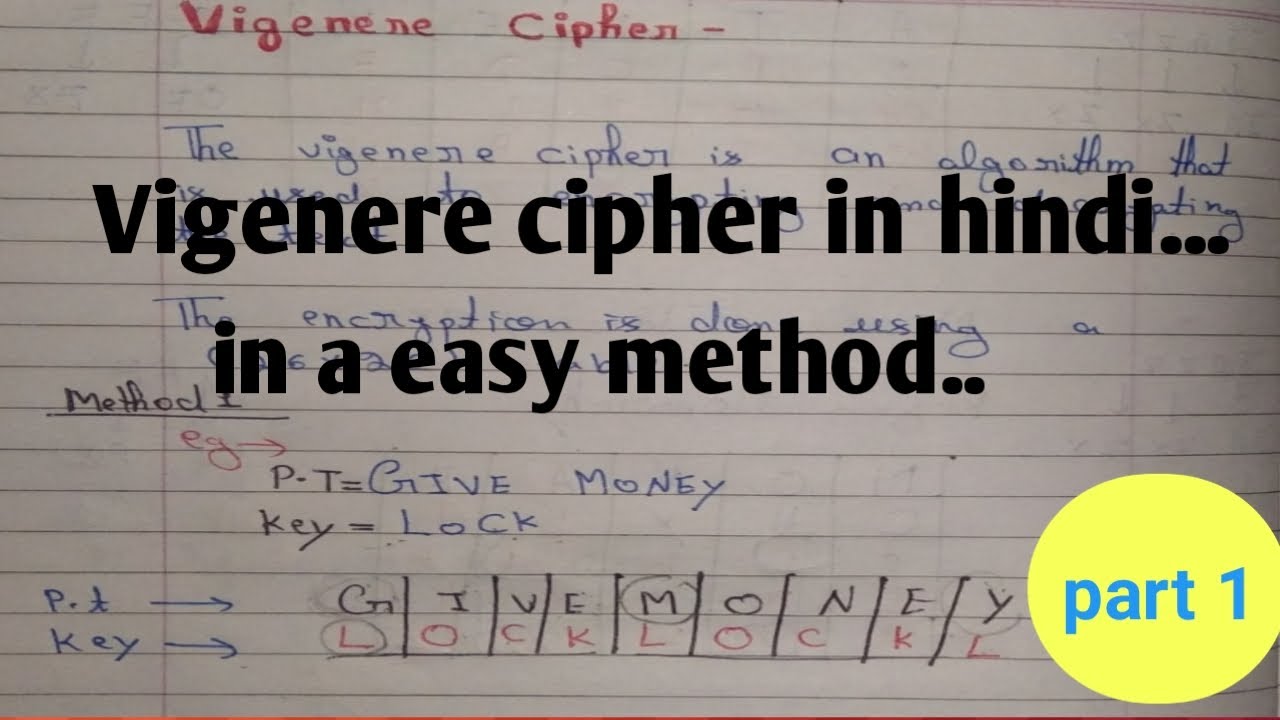 Vigenere Cipher -
The vigenere cipher is an algorithm that
is used to
Vigenere cipher in hindi...
The encryption is done using a
in a easy method..
Method I
eg →
P.T = GIVE MONEY
Key = LOCK
P.t → G I V E M O N E Y
Key → L O C K L O C K L
part 1